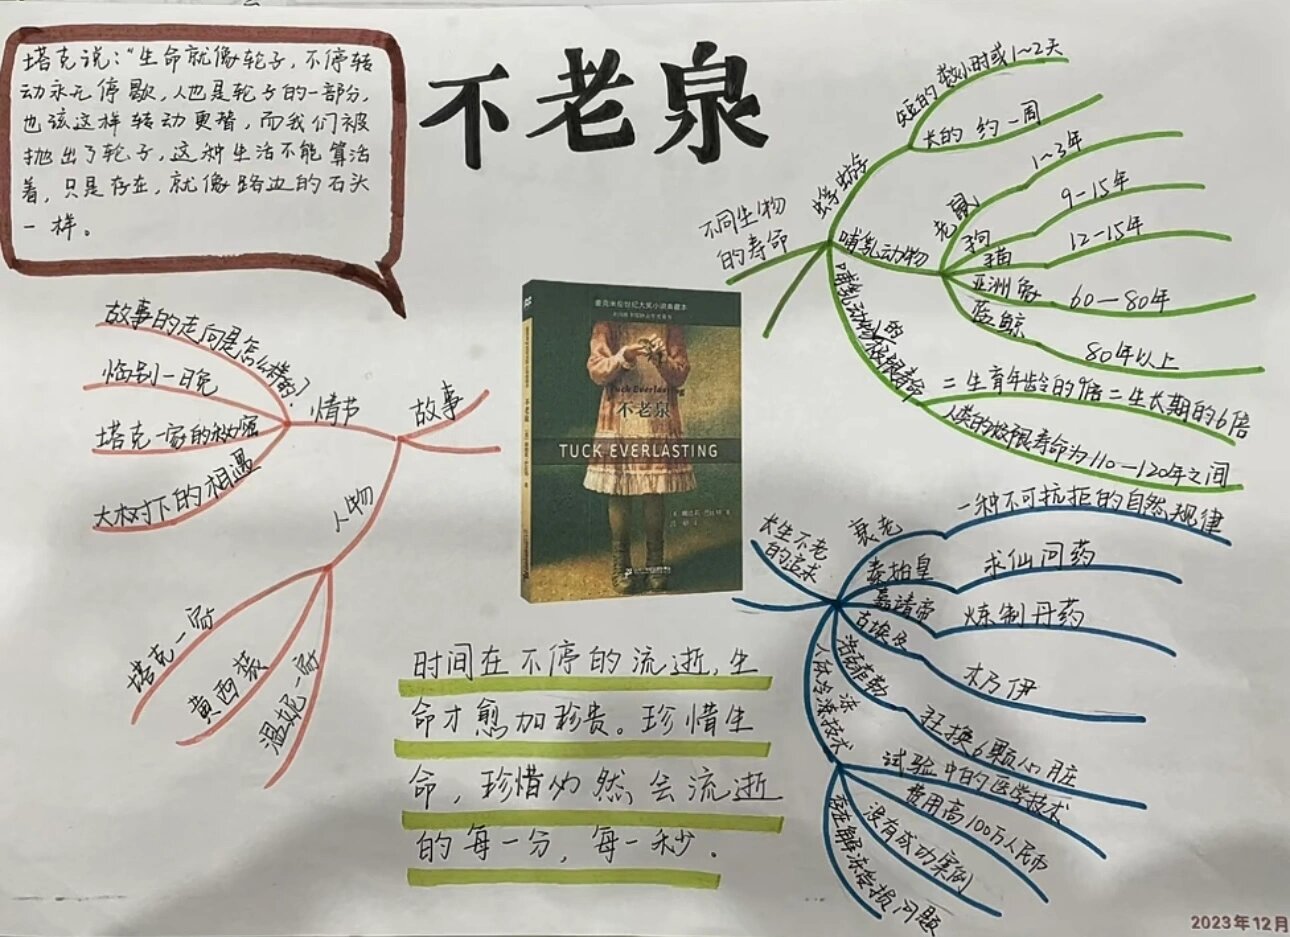 不老泉
塔克说：“生命就像轮子，不停转
动永无停歇，人也是轮子的一部分，
也该这样转动更替，而我们被
抛出了轮子，这种生活不能算活
着，只是存在，就像路边的石头
一样。
故事
情节
故事的走向是怎么样的？
临别一日免
塔克一家的秘密
大树下的相遇
人物
塔克一家
黄西装
温妮一家
麦克米伦世纪大奖小说典藏本
Tuck Everlasting
不老泉
TUCK EVERLASTING
不老泉
时间在不停的流逝，生
命才愈加珍贵。珍惜生
命，珍惜必然会流逝
的每一分，每一秒．
不同生物
的寿命
蜉蝣
短的 数小时或1~2天
长的 约一周
哺乳动物
老鼠
1~3年
狗
9-15年
猫
12-15年
亚洲象
60—80年
蓝鲸
80年以上
哺乳动物的极限寿命
=生育年龄的7倍=生长期的6倍
人类的极限寿命为110—120年之间
长生不老
的追求
衰老
一种不可抗拒的自然规律
秦始皇
求仙问药
嘉靖帝
炼制丹药
古埃及
木乃伊
洛克菲勒
狂换6颗心脏
人体冷冻技术
试验中的医学技术
费用高100万人民币
没有成功案例
存在解冻受损问题
2023年12月